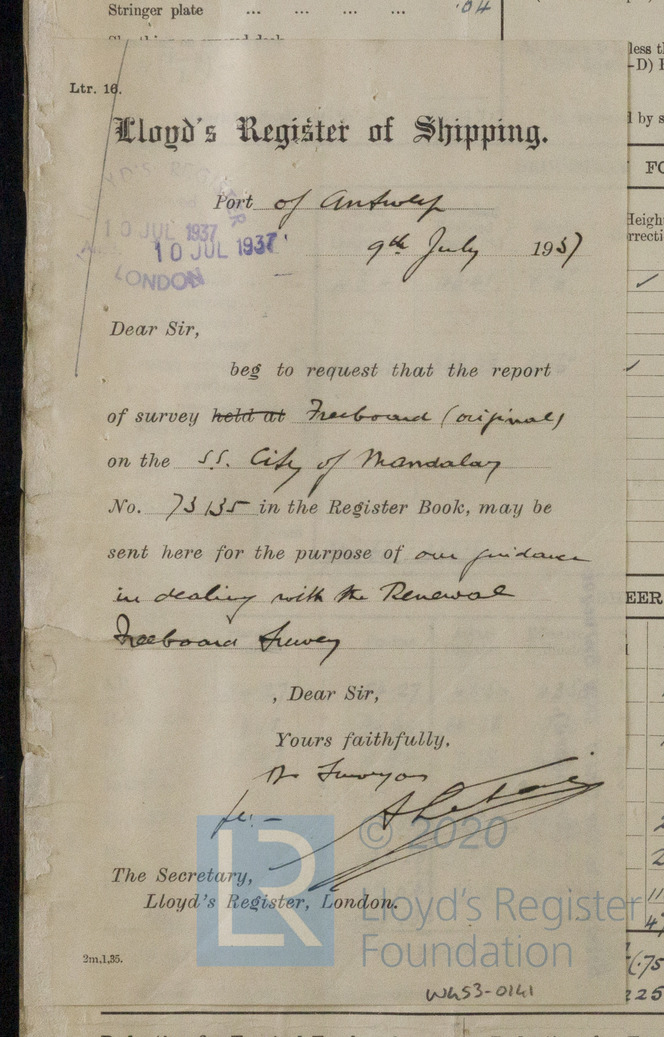 Stringer plate ... ... ... ... .04
less th
-D) F
Ltr. 16.
Lloyd's Register of Shipping.
d by s
FO
Port of Antwerp
Heigh
rrecti
LLOYD'S REGISTER
10 JUL 1937
10 JUL 1937
LONDON
9th July 1937
Dear Sir,
beg to request that the report
of survey held at Freeboard (original)
on the S.S. City of Mandalay
No. 73135 in the Register Book, may be
sent here for the purpose of our guidance
in dealing with the Renewal
EER
Freeboard Survey
, Dear Sir,
Yours faithfully,
The Surveyors
for:-
© 2020
The Secretary,
Lloyd's Register, London.
LR
Lloyd's Register
Foundation
2m,1,35.
W453-0141
225